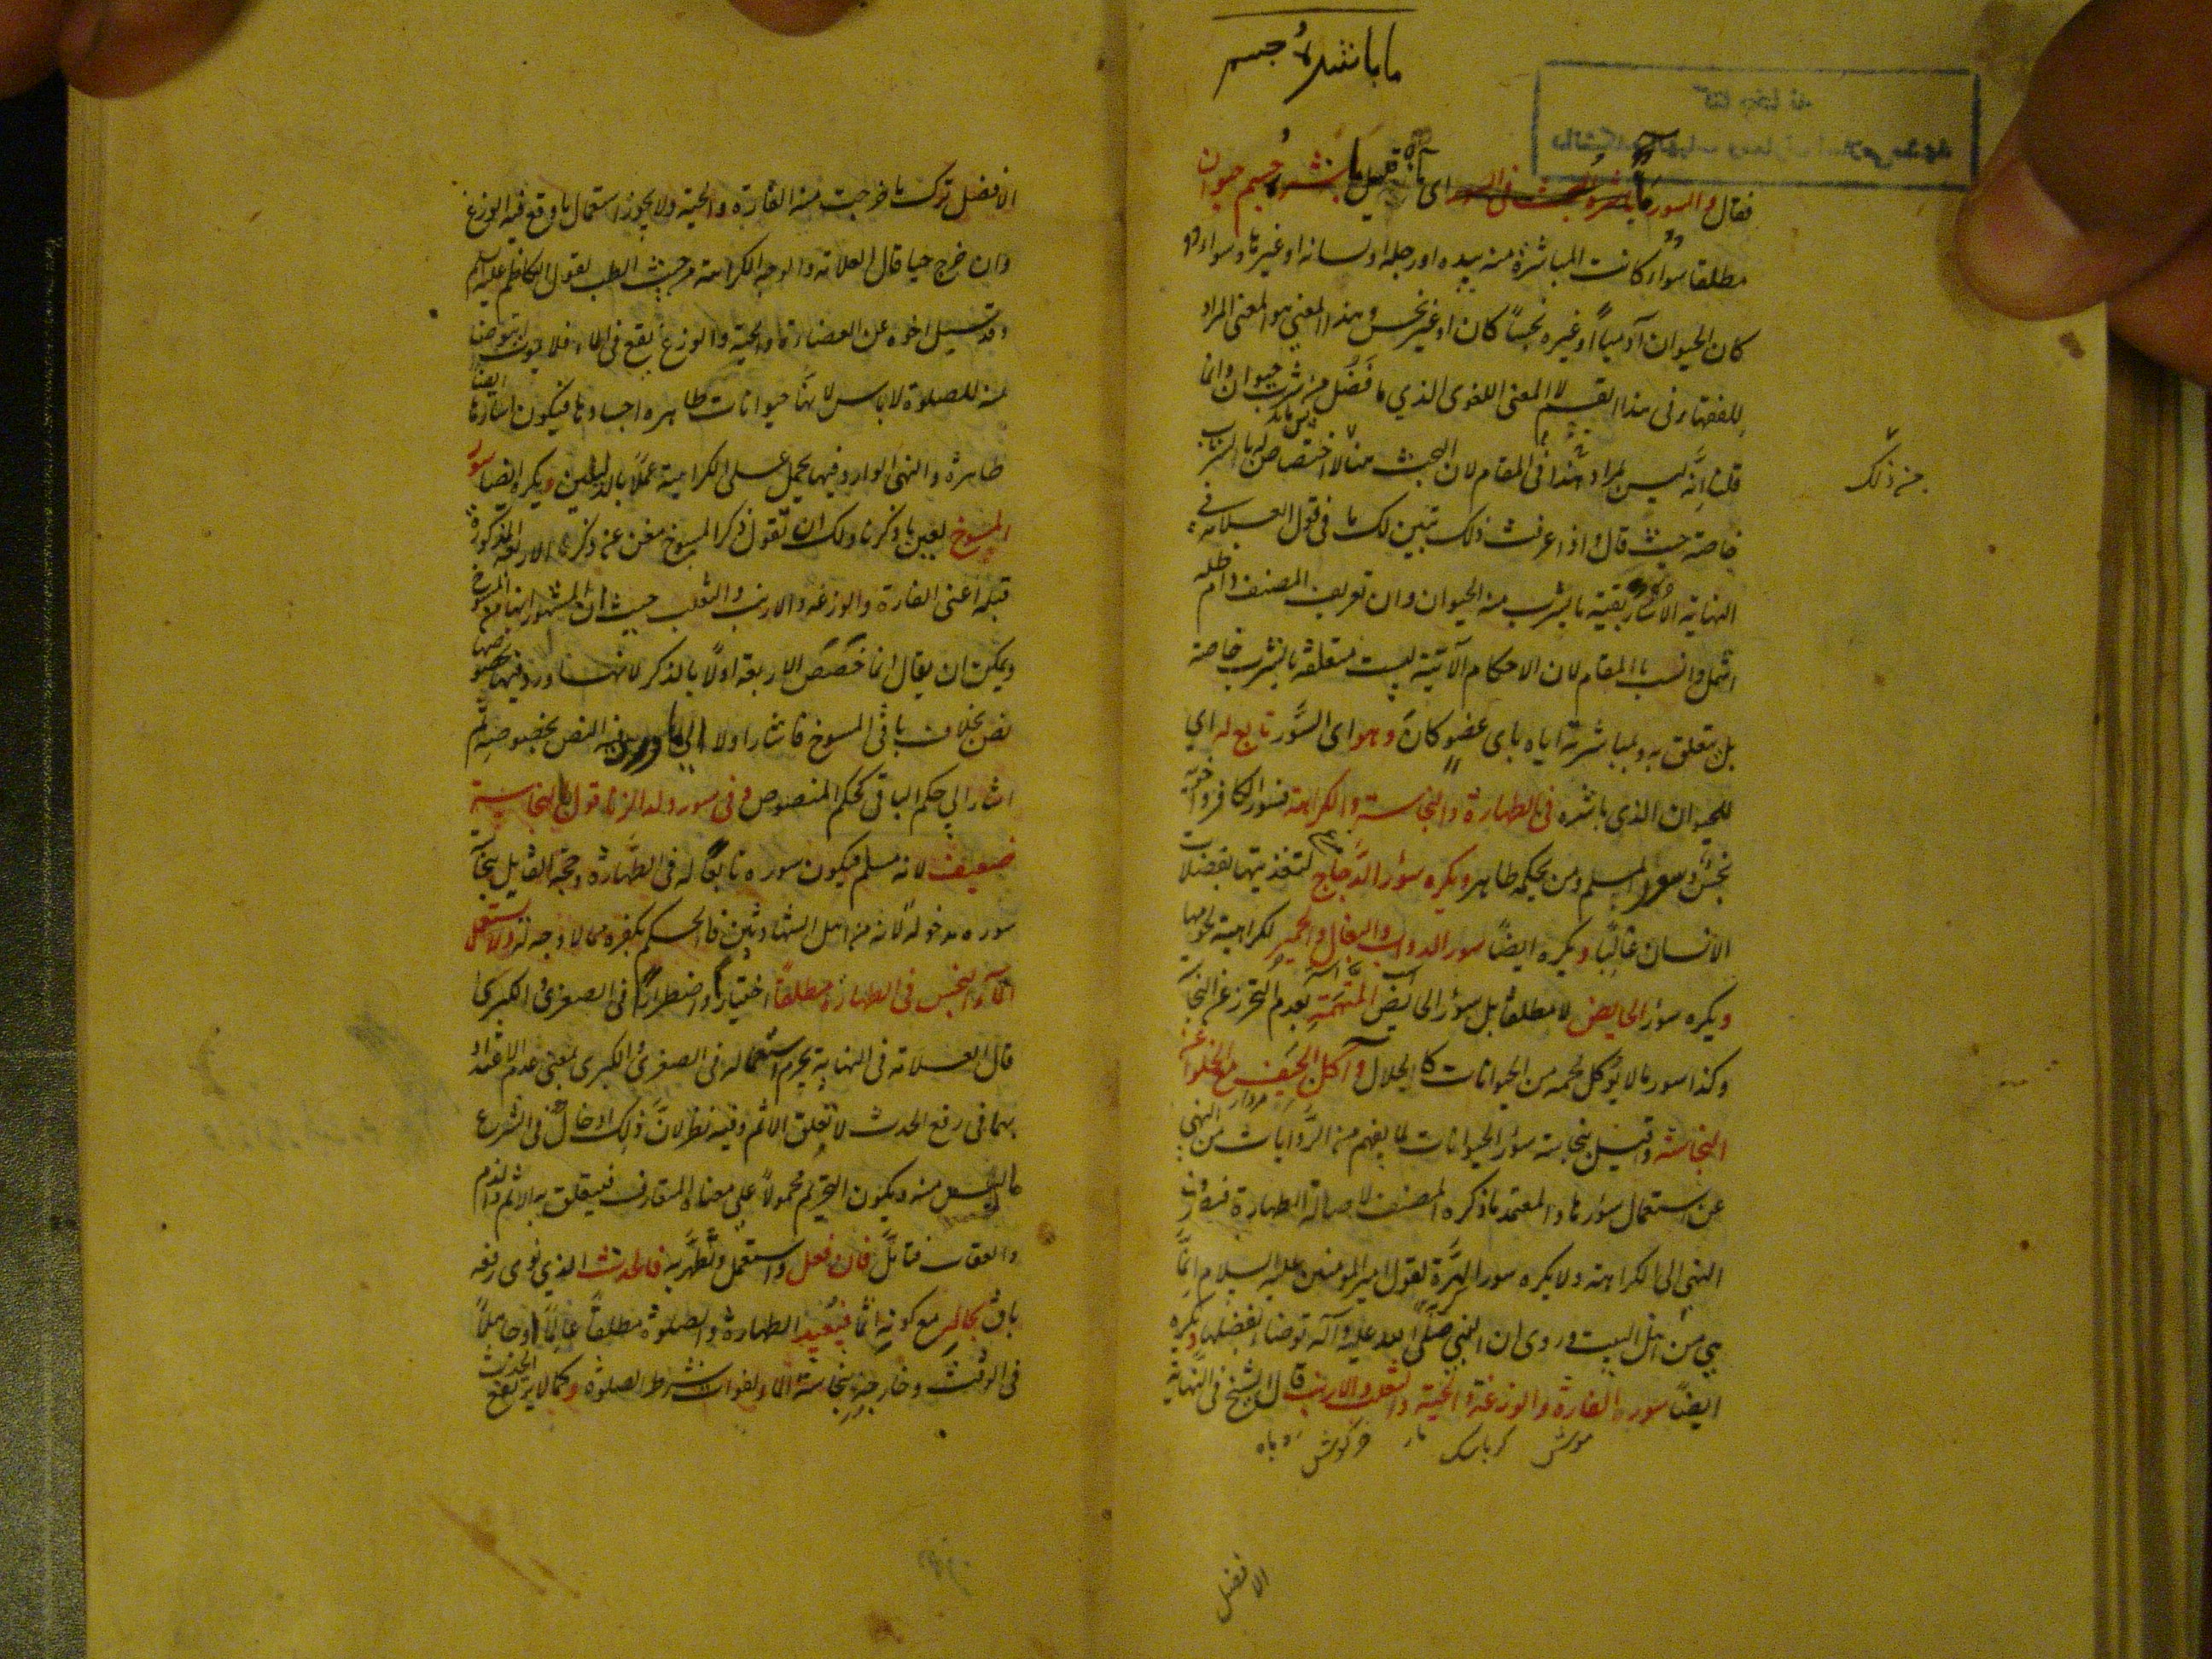 ما باشره جسم
فقال والسور ما باشره جسم حيوان
مطلقا سواء كانت المباشرة منه بيده او رجله او لسانه او غيرها وسواء
كان الحيوان آدمياً او غيره نجساً كان او غير نجس وهذا المعنى هو المعنى المراد
للفقهاء في هذا القسم لا المعنى اللغوى الذي ما فضل من شرب حيوان وانما
قلنا انّه ليس المراد هنا في المقام لان البحث هنا لا اختصاص له بالشراب
من ذلك
خاصة حيث قال واذا عرفت ذلك تبين لك ما في قول العلامة في
النهاية الأسآر بقية ما يشرب منه الحيوان وان تعريف المصنف دام ظله
اشمل وانسب بالمقام لان الاحكام الآتية ليست متعلقة بالشرب خاصة
بل يتعلق به وبمباشرته اياه باى عضو كان وهو اى السّور تابع له اي
للحيوان الذى باشره في الطهارة والنجاسة والكراهة فسور الكافر واخويه
نجس وسور المسلم ومن بحكمه طاهر ويكره سؤر الدّجاج لتغذيتها بفضلات
الانسان غالبًا ويكره ايضًا سور الدواب والبغال والحمير لكراهية لحومها
ويكره سؤر الحايض لا مطلقا بل سؤر الحايض المتهمة بعدم التحرز عن النجاسة
وكذا سور ما لا يؤكل لحمه من الحيوانات كالجلال وآكل الجيف مع الخلو عن
مردار
النجاسة وقيل بنجاسة سؤر الحيوانات لما يفهم من الروايات من النهي
عن استعمال سؤرها والمعتمد ما ذكره المصنف لاصالة الطهارة فيصرف
النهي الى الكراهة ولا يكره سور الهرّة لقول امير المومنين عليه السلام انّما
هي من اهل البيت وروى ان النبي صلى الله عليه وآله توضاء بفضلها ويكره
ايضًا سور الفارة والوزغة والحية والثعلب والارنب قال الشيخ في النهاية
موش كرباسك مار خركوش روباه
الافضل
الافضل ترك ما خرجت منه الفارة والحية ولا يجوز استعمال ما وقع فيه الوزغ
وان خرج حيا قال العلامة والوجه الكراهة من حيث الطب لقول الكاظم عليه السلم
وقد سيل اخوه عن العضاية والحية والوزغ يقع في الماء فلا يموت ايتوضى
منه للصلوة لا باس لانها حيوانات طاهره اجسادها فيكون اسارها ايضا
طاهرة والنهى الوارد فيها يحمل على الكراهية عملًا بالدليلين ويكره ايضا سور
المسوخ بعين ما ذكرنا ولك ان تقول ذكر المسوخ مغن عن ذكر الاربعة المذكورة
قبله اعنى الفارة والوزغة والارنب والثعلب حيث ان المشهور انها من المسوخ
ويمكن ان يقال انما خصّص الاربعة اولًا بالذكر لانها ورد فيها بخصوصها
نص بخلاف باقى المسوخ فاشار اولا الى ما ورد فيه النص بخصوصه ثم
اشار الى حكم الباقى كحكم المنصوص وفى سور ولد الزنا قول بالنجاسة
ضعيف لانه مسلم فيكون سوره تابعًا له في الطهارة وحجة القايل بنجاسة
سوره مدخولة لانه من اهل الشهادتين فالحكم بكفره مما لا وجه له ولا يستعمل
الماء النجس في الطهارة مطلقاً اختيارًا واضطرارًا في الصغرى والكبرى
قال العلامة في النهاية يحرم استعماله في الصغرى والكبرى بمعنى عدم الاعتداد
بهما في رفع الحدث لا تعلق الاثم وفيه نظر لانّ ذلك ادخال في الشرع
ما ليس منه ويكون التحريم محمولاً على معناه المتعارف فيتعلق به الاثم والذم
والعقاب فتامّل فان فعل واستعمل وتطهّر به فالحدث الذي نوى رفعه
باق بحاله مع كونه آثمًا فيعيد الطهارة والصلوة مطلقاً عالمًا او جاهلًا
في الوقت وخارجه بنجاسة الماء ولفوات شرط الصلوة وكما لا يرتفع الحدث